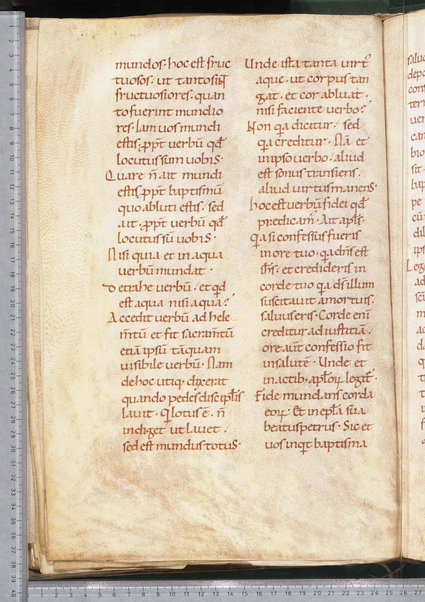 mundos· hoc est fruc
tuosos· ut tanto siͭ
fructuosiores· quan
to fuerint mundio
res· Iam uos mundi
estis· ꝓpt̄ uerbū qđ
locutus sum uobis·
Quare n̄ ait mundi
estis ꝓpt̄ baptismū
quo abluti estis· sed
ait· ꝓpt̄ uerbū qđ
locutus sū uobis·
Nisi quia et in aqua
uerbū mundat·
Detrahe uerbū· et qđ
est aqua nisi aqua?
Accedit uerbū ad hele
m̄tū et fit sacram̄tū
etiā ipsū tāquam
uisibile uerbū· Nam
de hoc utiq· dixerat
quando pedes discipl̄is
lauit· Qui lotus ē· n̄
indiget ut lauet·
sed est mundus totus·
Unde ista tanta uirt᷒
aque· ut corpus tan
gat· et cor abluat·
nisi faciente uerbo?
Non qa dicitur· sed
qa creditur· Nā et
in ipso uerbo· aliud
est sonus transiens·
aliud uirtus manens·
Hoc est uerbū fidei qđ
predicam᷒· Ait apl̄s·
Qa si confessus fueris
in ore tuo· qa dn̄s est
ih̄s· et credideris in
corde tuo qa dš illum
suscitauit a mortuis·
saluus eris· Corde eni
creditur ad iustitiā·
ore aut̄ confessio fit
in salutē· Unde et
in actib· apl̄oꝝ legit᷒·
Fide mundans corda
eoꝝ· Et in epl̄a sua
beatus petrus· Sic et
uos inqt baptisma